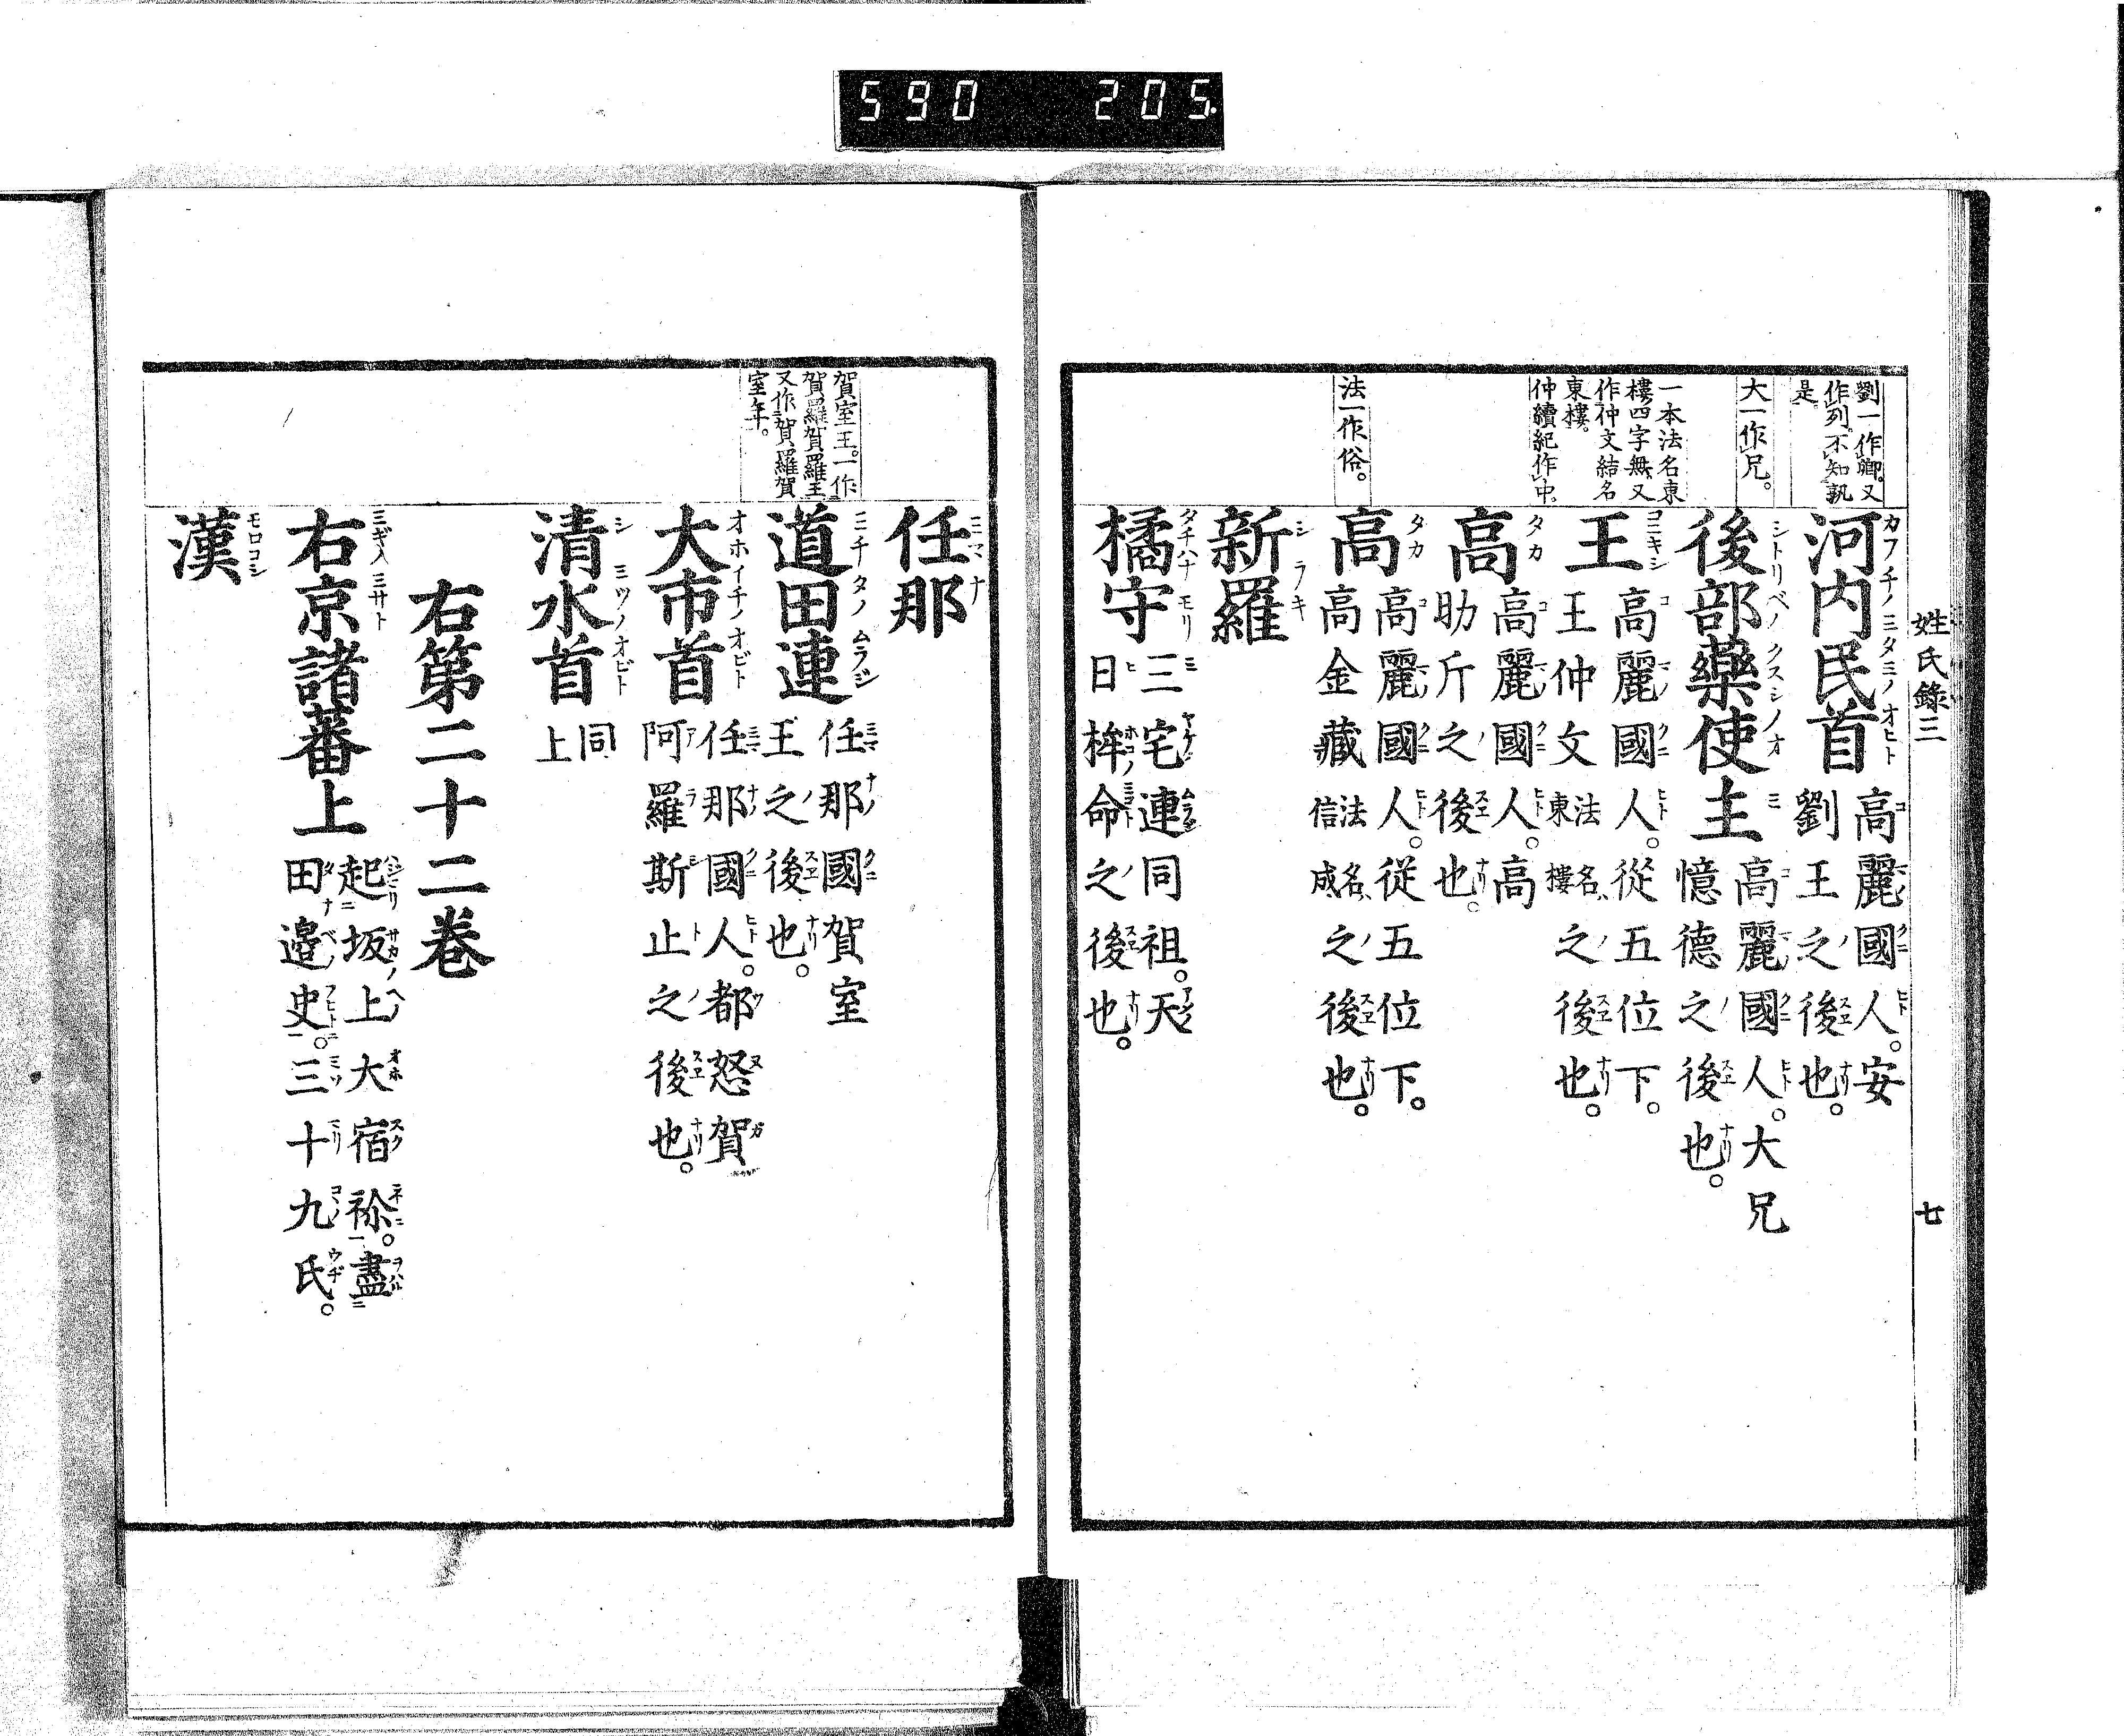 590 205.
姓氏錄三
七
劉一作卿。又
作列。不知孰
是
大一作兄。
一本法名東
樓四字無。又
作仲文結名
東樓。
仲續紀作中
法一作俗。
河内民首
高麗國人。安
劉王之後也。
後部藥使主
高麗國人。大兄
憶德之後也。
王
高麗國人。從五位下。
王仲文法名東樓之後也。
高
高麗國人。高
助斤之後也。
高
高麗國人。從五位下。
高金藏法名信成之後也。
新羅
橘守
三宅連同祖。天
日桙命之後也。
賀室王。一作
賀羅賀羅王
又作賀羅賀
室年。
任那
道田連
任那國賀室
王之後也。
大市首
任那國人。都怒賀
阿羅斯止之後也。
清水首
同
上
右第二十二巻
右京諸蕃上
起坂上大宿祢。盡
田邉史。三十九氏。
漢